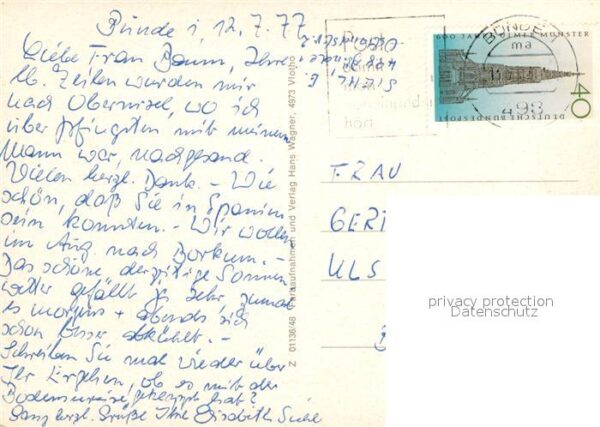 Bünde i, 12.7.77
Liebe Frau Baum, Ihre
lb. Zeilen wurden mir
nach Obernisel, wo ich
über Pfingsten mit meinem
Mann war, nachgesand.
Vielen herzl. Dank. - Wie
schön, daß Sie in Spanien
sein konnten. - Wir wollen
im Aug. nach Borkum. -
Das schöne derzeitige Sonnen
wetter gefällt ja sehr, zumal
es morgens + abends sich
schon besser abkühlt. -
Schreiben Sie mal wieder über
Ihr Ergehen, ob es mit der
Bodenseereise geklappt hat?
Ganz herzl. Grüße Ihre Elisabeth
Z 01136/48 Farbaufnahmen und Verlag Hans Wagner, 4973 Vlotho
600 JAHRE ULMER MÜNSTER
DEUTSCHE BUNDESPOST
40
BÜNDE
ma
498
FRAU
GERT
ULS
privacy protection
Datenschutz